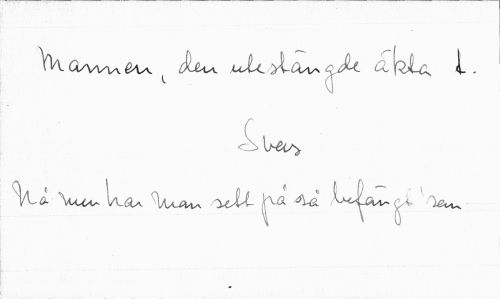 Mannen, den utestängde äkta t.
Svens
Nå men har man sett på så befängt' sen